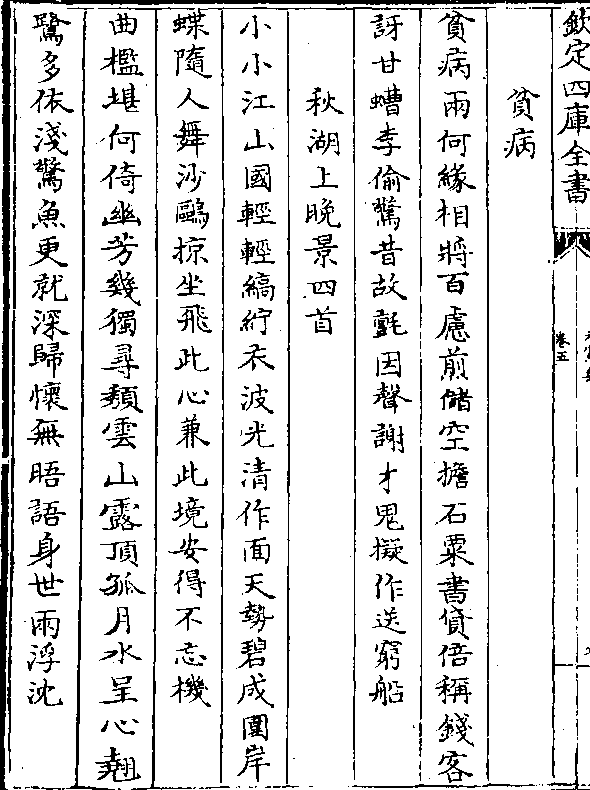 欽定四庫全書
卷五
貧病
貧病兩何緣相將百慮煎儲空擔石粟書貸倍稱錢客
訝甘螬李偷驚昔故氈因聲謝才鬼擬作送窮船
秋湖上晚景四首
小小江山國輕輕縞紵衣波光清作面天勢碧成圍岸
蝶隨人舞沙鷗掠坐飛此心兼此境安得不忘機
曲檻堪何倚幽芳幾獨尋頹雲山露頂孤月水呈心翹
鷺多依淺驚魚更就深歸懷無晤語身世兩浮沈